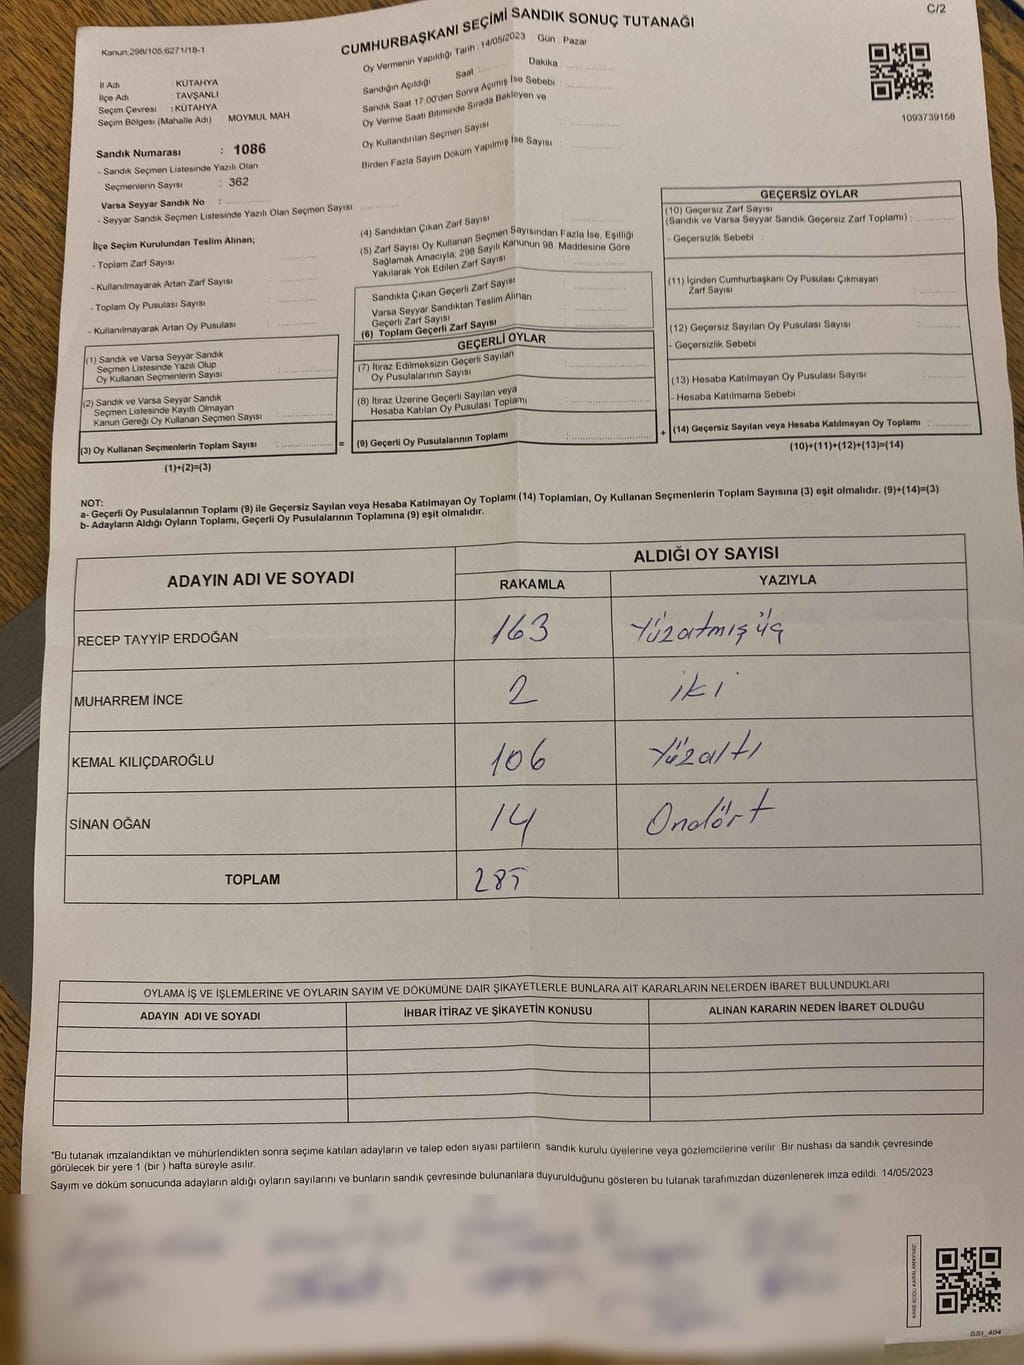 C/2
CUMHURBAŞKANI SEÇİMİ SANDIK SONUÇ TUTANAĞI
Kanun,298/105,6271/18-1
Oy Vermenin Yapıldığı Tarih : 14/05/2023 Gün : Pazar
İl Adı : KÜTAHYA
İlçe Adı : TAVŞANLI
Seçim Çevresi : KÜTAHYA
Seçim Bölgesi (Mahalle Adı) MOYMUL MAH
Sandık Numarası : 1086
- Sandık Seçmen Listesinde Yazılı Olan
Seçmenlerin Sayısı : 362
Varsa Seyyar Sandık No :
- Seyyar Sandık Seçmen Listesinde Yazılı Olan Seçmen Sayısı
İlçe Seçim Kurulundan Teslim Alınan;
- Toplam Zarf Sayısı
- Kullanılmayarak Artan Zarf Sayısı
- Toplam Oy Pusulası Sayısı
- Kullanılmayarak Artan Oy Pusulası
(1) Sandık ve Varsa Seyyar Sandık
Seçmen Listesinde Yazılı Olup
Oy Kullanan Seçmenlerin Sayısı
(2) Sandık ve Varsa Seyyar Sandık
Seçmen Listesinde Kayıtlı Olmayan
Kanun Gereği Oy Kullanan Seçmen Sayısı
(3) Oy Kullanan Seçmenlerin Toplam Sayısı :
(1)+(2)=(3)
Sandığın Açıldığı Saat : Dakika :
Sandık Saat 17:00'den Sonra Açımış İse Sebebi :
Oy Verme Saati Bitiminde Sırada Bekleyen ve
Oy Kullandırılan Seçmen Sayısı :
Birden Fazla Sayım Döküm Yapılmış İse Sayısı :
(4) Sandıktan Çıkan Zarf Sayısı :
(5) Zarf Sayısı Oy Kullanan Seçmen Sayısından Fazla İse, Eşitliği
Sağlamak Amacıyla, 298 Sayılı Kanunun 98. Maddesine Göre
Yakılarak Yok Edilen Zarf Sayısı :
Sandıkta Çıkan Geçerli Zarf Sayısı :
Varsa Seyyar Sandıktan Teslim Alınan
Geçerli Zarf Sayısı
(6) Toplam Geçerli Zarf Sayısı
GEÇERLİ OYLAR
(7) İtiraz Edilmeksizin Geçerli Sayılan
Oy Pusulalarının Sayısı :
(8) İtiraz Üzerine Geçerli Sayılan veya
Hesaba Katılan Oy Pusulası Toplamı :
= (9) Geçerli Oy Pusulalarının Toplamı :
1093739158
GEÇERSİZ OYLAR
(10) Geçersiz Zarf Sayısı
(Sandık ve Varsa Seyyar Sandık Geçersiz Zarf Toplamı) :
- Geçersizlik Sebebi :
(11) İçinden Cumhurbaşkanı Oy Pusulası Çıkmayan
Zarf Sayısı :
(12) Geçersiz Sayılan Oy Pusulası Sayısı :
- Geçersizlik Sebebi :
(13) Hesaba Katılmayan Oy Pusulası Sayısı :
- Hesaba Katılmama Sebebi :
+ (14) Geçersiz Sayılan veya Hesaba Katılmayan Oy Toplamı :
(10)+(11)+(12)+(13)=(14)
NOT:
a- Geçerli Oy Pusulalarının Toplamı (9) ile Geçersiz Sayılan veya Hesaba Katılmayan Oy Toplamı (14) Toplamları, Oy Kullanan Seçmenlerin Toplam Sayısına (3) eşit olmalıdır. (9)+(14)=(3)
b- Adayların Aldığı Oyların Toplamı, Geçerli Oy Pusulalarının Toplamına (9) eşit olmalıdır.
ADAYIN ADI VE SOYADI
ALDIĞI OY SAYISI
RAKAMLA YAZIYLA
RECEP TAYYİP ERDOĞAN 163 Yüzatmış üç
MUHARREM İNCE 2 iki
KEMAL KILIÇDAROĞLU 106 Yüzaltı
SİNAN OĞAN 14 Ondört
TOPLAM 285
OYLAMA İŞ VE İŞLEMLERİNE VE OYLARIN SAYIM VE DÖKÜMÜNE DAİR ŞİKAYETLERLE BUNLARA AİT KARARLARIN NELERDEN İBARET BULUNDUKLARI
ADAYIN ADI VE SOYADI İHBAR İTİRAZ VE ŞİKAYETİN KONUSU ALINAN KARARIN NEDEN İBARET OLDUĞU
*Bu tutanak imzalandıktan ve mühürlendikten sonra seçime katılan adayların ve talep eden siyasi partilerin sandık kurulu üyelerine veya gözlemcilerine verilir. Bir nüshası da sandık çevresinde
görülecek bir yere 1 (bir ) hafta süreyle asılır.
Sayım ve döküm sonucunda adayların aldığı oyların sayılarını ve bunların sandık çevresinde bulunanlara duyurulduğunu gösteren bu tutanak tarafımızdan düzenlenerek imza edildi. 14/05/2023
KARE KODU KARALAMAYINIZ!
SSİ_404